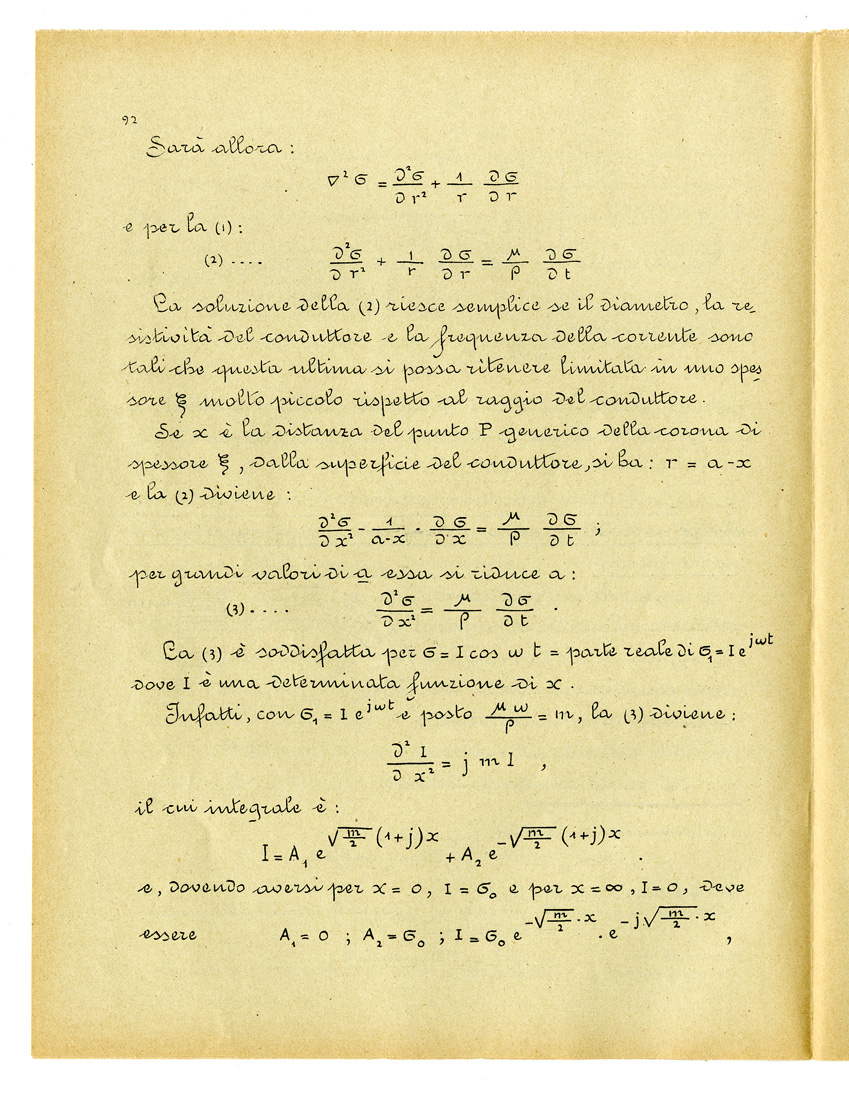 92
Sarà allora :
∇² σ = ∂²σ/∂r² + 1/r ∂σ/∂r
e per la (1) :
(2) .... ∂²σ/∂r² + 1/r ∂σ/∂r = μ/ρ ∂σ/∂t
La soluzione della (2) riesce semplice se il diametro, la re_
sistività del conduttore e la frequenza della corrente sono
tali che questa ultima si possa ritenere limitata in uno spes
sore ξ molto piccolo rispetto al raggio del conduttore.
Se x è la distanza del punto P generico della corona di
spessore ξ, dalla superficie del conduttore, si ha : r = a-x
e la (2) diviene :
∂²σ/∂x² - 1/(a-x) · ∂σ/∂x = μ/ρ ∂σ/∂t ;
per grandi valori di a essa si riduce a :
(3) .... ∂²σ/∂x² = μ/ρ ∂σ/∂t .
La (3) è soddisfatta per σ = I cos ω t = parte reale di σ₁ = I e^{jωt}
dove I è una determinata funzione di x .
Infatti, con σ₁ = I e^{jωt} e posto μω/ρ = m, la (3) diviene :
∂² I/∂x² = j m I ,
il cui integrale è :
I = A₁ e^{√(m/2) (1+j)x} + A₂ e^{-√(m/2) (1+j)x} .
e, dovendo aversi per x = 0, I = σ₀ e per x = ∞, I = 0, deve
essere A₁ = 0 ; A₂ = σ₀ ; I = σ₀ e^{-√(m/2)·x} · e^{-j√(m/2)·x} ,